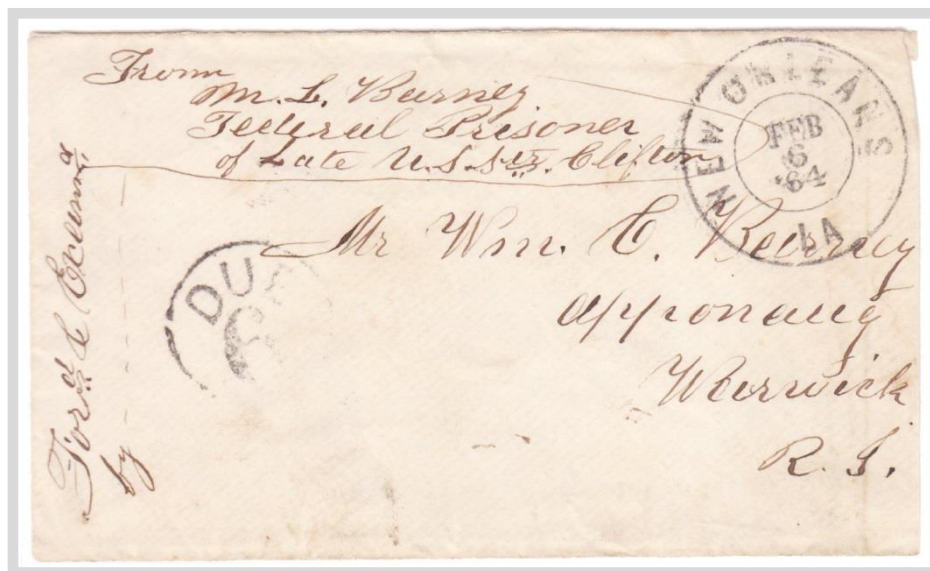 From
M. L. Burney
Federal Prisoner
of Late U.S. Str. Clifton
NEW ORLEANS
FEB
6
64
LA
Mr Wm. C. Burney
Apponaug
Warwick
R. I.
DUE
Ford & Examd
by